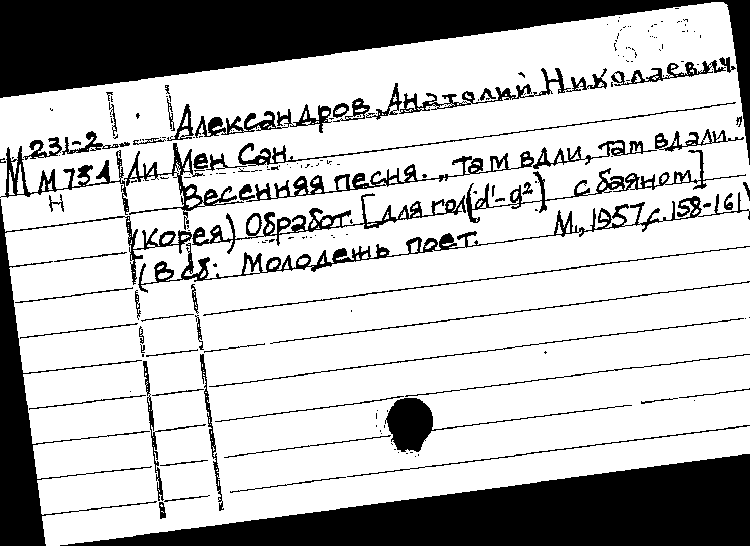 653
Александров, Анатолий Николаевич.
М 231-2
М 734
Н
Ли Мен Сан.
Весенняя песня. „Там вдали, там вдали..."
(Корея) Обработ. [для гол (d'-g²) с баяном]
(В сб: Молодежь поет. М., 1957, с. 158-161)